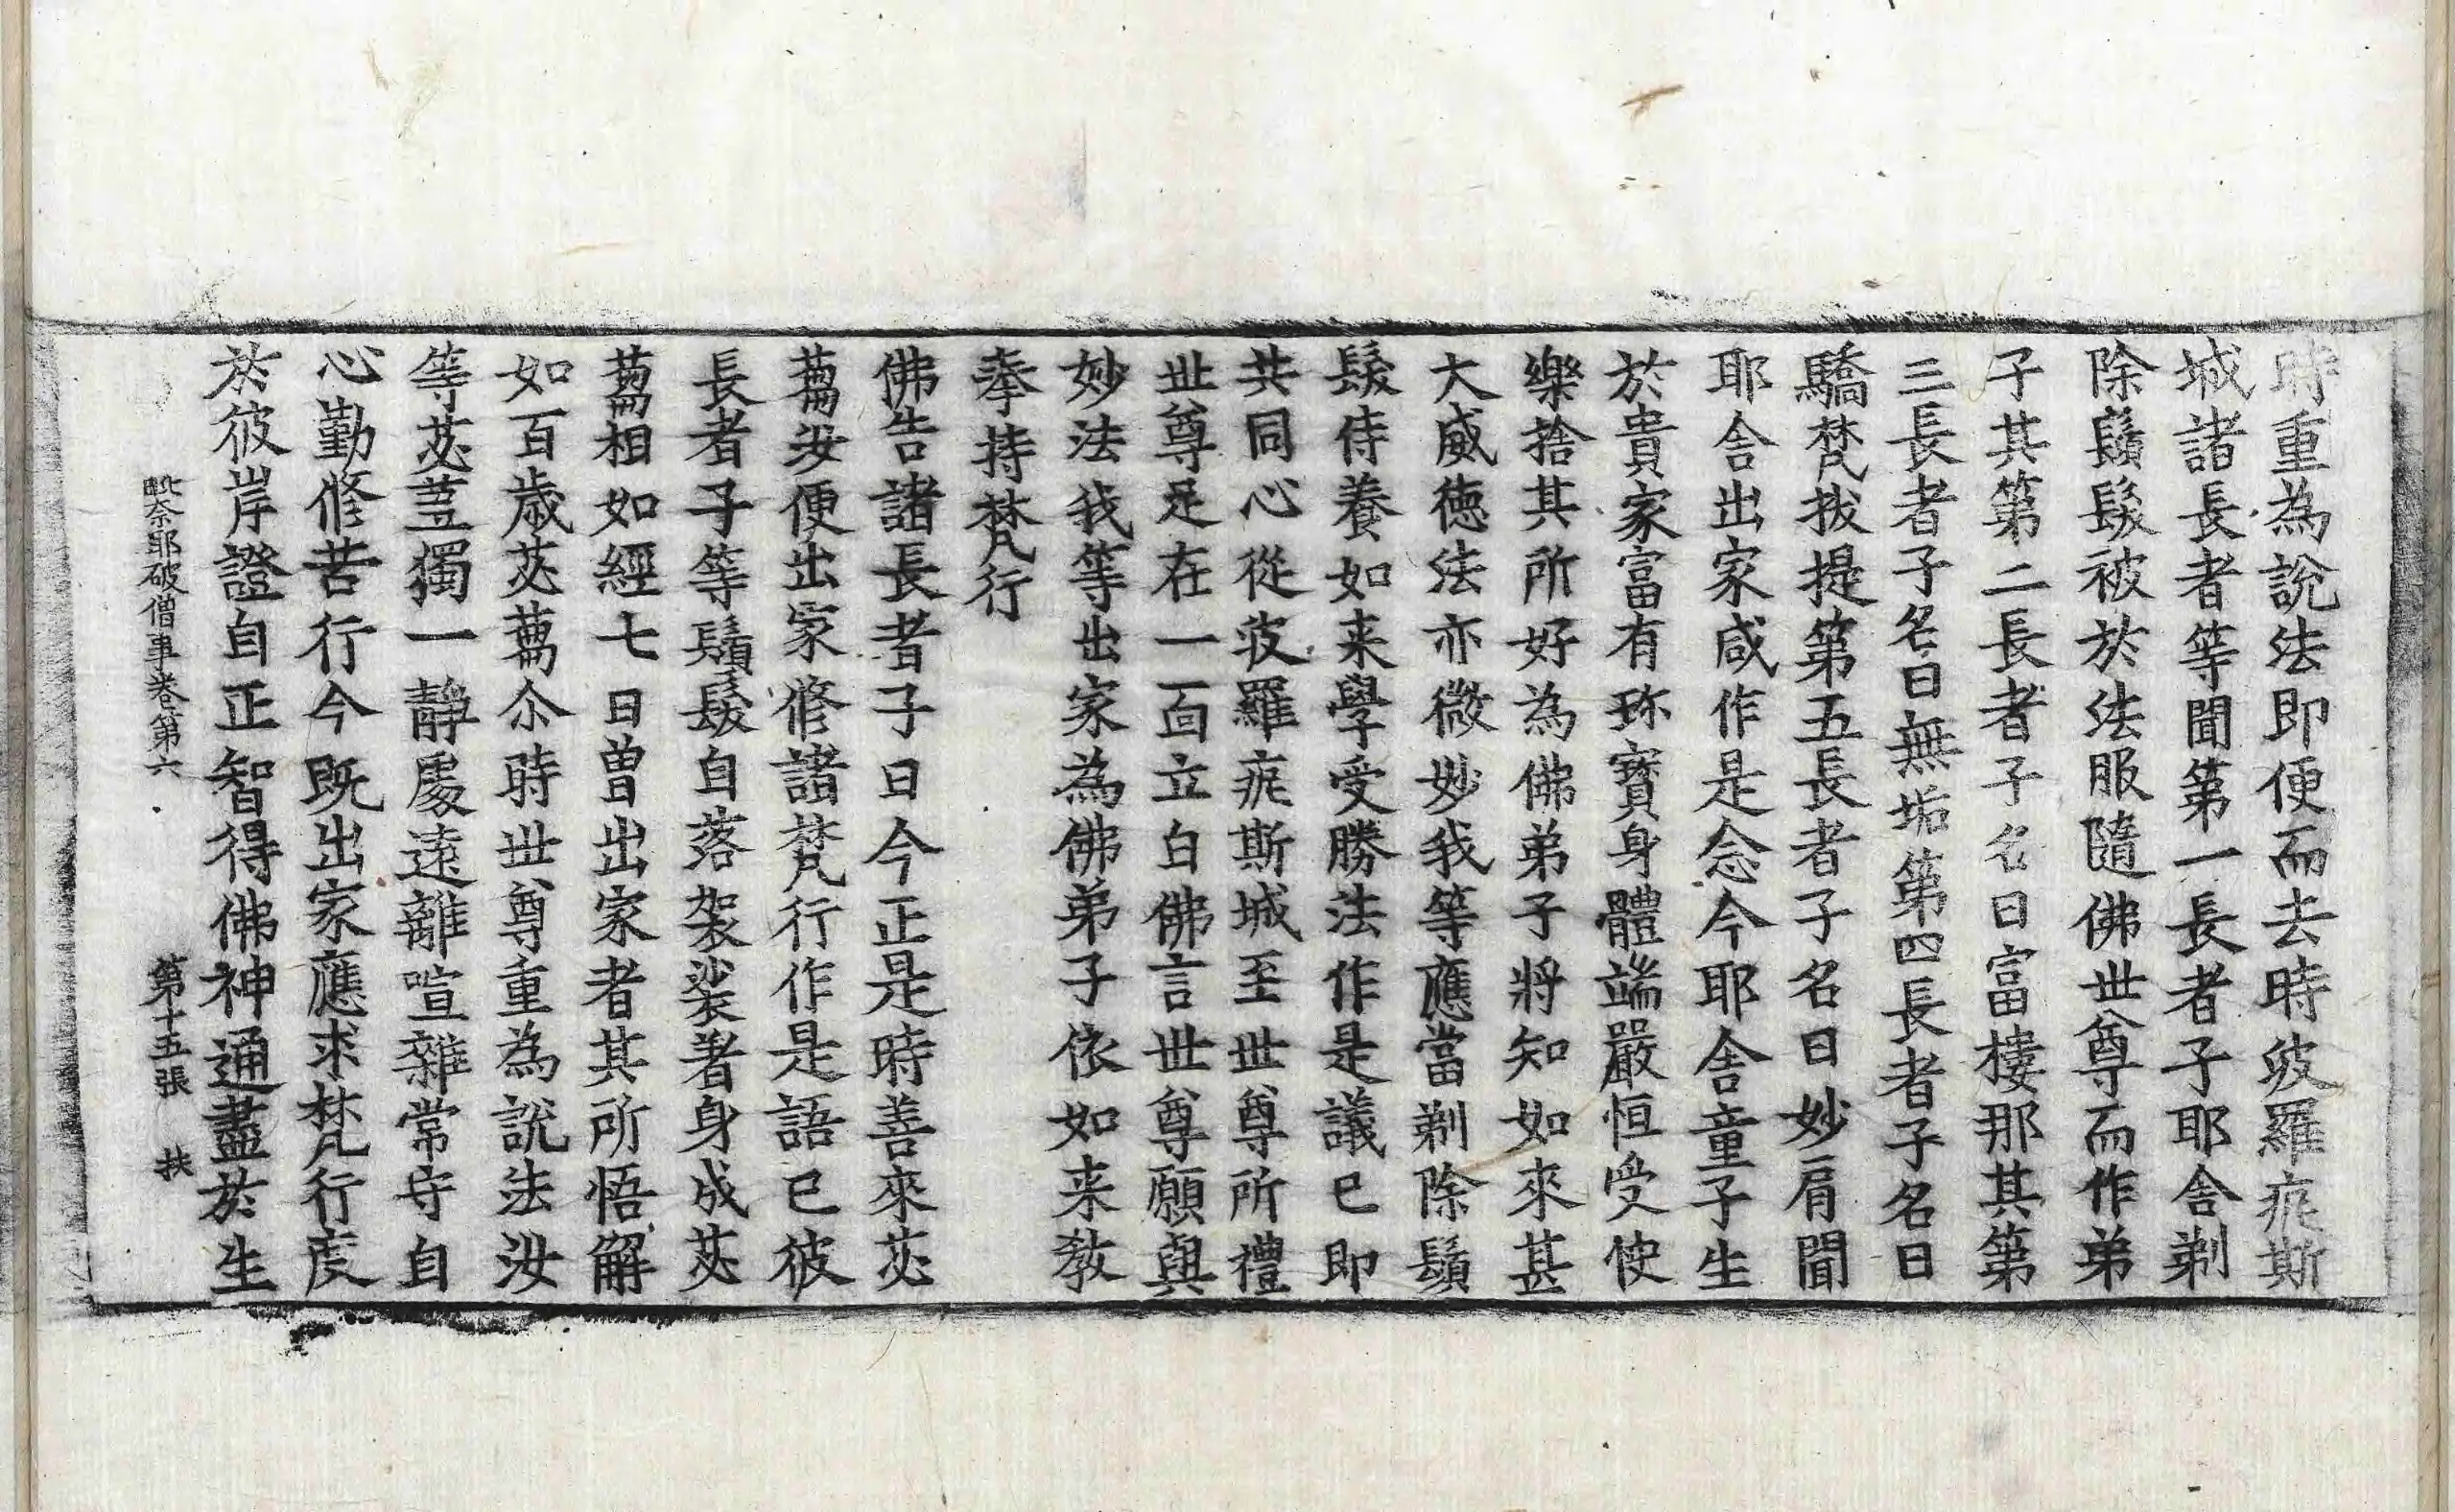 時重為說法即便而去時波羅痆斯
城諸長者等聞第一長者子耶舍剃
除鬚髮被於法服隨佛世尊而作弟
子其第二長者子名曰富樓那其第
三長者子名曰無垢第四長者子名曰
驕梵拔提第五長者子名曰妙肩聞
耶舍出家咸作是念今耶舍童子生
於貴家富有珎寶身體端嚴恒受使
樂捨其所好為佛弟子將知如來甚
大威德法亦微妙我等應當剃除鬚
髮侍養如来學受勝法作是議已即
共同心從波羅痆斯城至世尊所禮
世尊足在一面立白佛言世尊願與
妙法我等出家為佛弟子依如来教
奉持梵行
佛告諸長者子曰今正是時善來苾
蒭汝便出家修諸梵行作是語已彼
長者子等鬚髮自落袈裟著身成苾
蒭相如經七日曽出家者其所悟解
如百歲苾蒭尒時世尊重為說法汝
等苾蒭獨一靜處遠離喧雜常守自
心勤修苦行今既出家應求梵行度
於彼岸證自正智得佛神通盡於生
毗奈耶破僧事卷第六 第十五張 扶